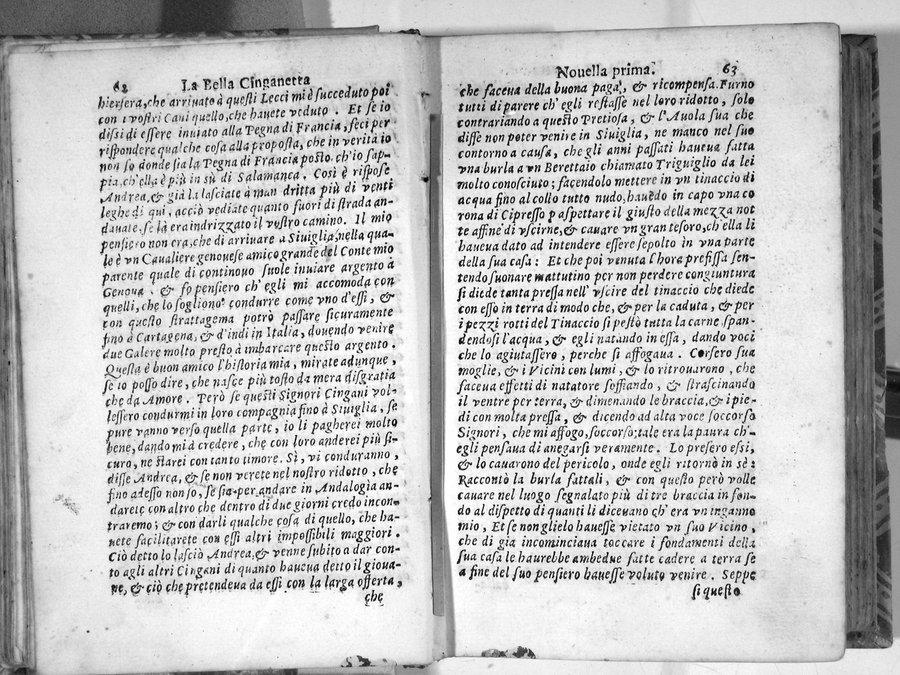 62 La Bella Cinganetta
hiersera, che arriuato à questi Lecci mi è succeduto poi
con i vostri Cani quello, che hauete veduto . Et se io
dissi di essere inuiato alla Pegna di Francia, feci per
rispondere qualche cosa alla proposta, che in verità io
non so donde sia la Pegna di Francia posto, ch'io sap-
pia, ch'ella è più in sù di Salamanca. Così è rispose
Andrea, & già la lasciate à man dritta più di venti
leghe di qui, acciò vediate quanto fuori di strada an-
dauate, se là era indrizzato il vostro camino. Il mio
pensiero non era, che di arriuare a Siuiglia, nella qua-
le è vn Caualiere genouese amico grande del Conte mio
parente quale di continouo suole inuiare argento à
Genoua . & fo pensiero ch' egli mi accomoda con
quelli, che lo sogliono condurre come vno d'essi, &
con questo strattagema potrò passare sicuramente
fino à Cartagena, & d'indi in Italia, douendo venire
due Galere molto presto à imbarcare questo argento .
Questa è buon amico l'historia mia, mirate adunque,
se io posso dire, che nasce più tosto da mera disgratia
che da Amore . Però se questi Signori Cingani vol-
lessero condurmi in loro compagnia fino à Siuiglia, se
pure vanno verso quella parte, io li pagherei molto
bene, dando mi à credere, che con loro anderei più si-
curo, ne starei con tanto timore. Sì, vi conduranno,
disse Andrea, & se non verete nel nostro ridotto, che
fino adesso non so, se sia per andare in Andalogia an-
darete con altro che dentro di due giorni credo incon-
traremo; & con darli qualche cosa di quello, che ha-
uete facilitarete con essi altri impossibili maggiori.
Ciò detto lo lasciò Andrea, & venne subito a dar con-
to agli altri Cingani di quanto haueua detto il gioua-
ne, & ciò che pretendeua da essi con la larga offerta,
che
Nouella prima. 63
che faceua della buona paga, & ricompensa. Furno
tutti di parere ch' egli restasse nel loro ridotto, solo
contrariando a questo Pretiosa, & l'Auola sua che
disse non poter venire in Siuiglia, ne manco nel suo
contorno a causa, che gli anni passati haueua fatta
vna burla a vn Berettaio chiamato Triguiglio da lei
molto conosciuto; facendolo mettere in vn tinaccio di
acqua fino al collo tutto nudo, hauēdo in capo vna co
rona di Cipresso p aspettare il giusto della mezza not
te affine di vscirne, & cauare vn gran tesoro, ch'ella li
haueua dato ad intendere essere sepolto in vna parte
della sua casa : Et che poi venuta l'hora prefissa sen-
tendo suonare mattutino per non perdere congiuntura
si diede tanta pressa nell' vscire del tinaccio che diede
con esso in terra di modo che, & per la caduta, & per
i pezzi rotti del Tinaccio si pestò tutta la carne span-
dendosi l'acqua, & egli natando in essa, dando voci
che lo agiutassero, perche si affogaua . Corsero sua
moglie, & i Vicini con lumi, & lo ritrouarono, che
faceua effetti di natatore soffiando, & strascinando
il ventre per terra, & dimenando le braccia, & i pie-
di con molta pressa, & dicendo ad alta voce soccorso
Signori, che mi affogo, soccorso; tale era la paura ch'-
egli pensaua di anegarsi veramente. Lo presero essi,
& lo cauarono del pericolo, onde egli ritornò in sè :
Raccontò la burla fattali, & con questo però volle
cauare nel luogo segnalato più di tre braccia in fon-
do al dispetto di quanti li diceuano ch' era vn inganno
mio, Et se non glielo hauesse vietato vn suo Vicino,
che di già incominciaua toccare i fondamenti della
sua casa le haurebbe ambedue fatte cadere a terra se
a fine del suo pensiero hauesse voluto venire. Seppe
si questo